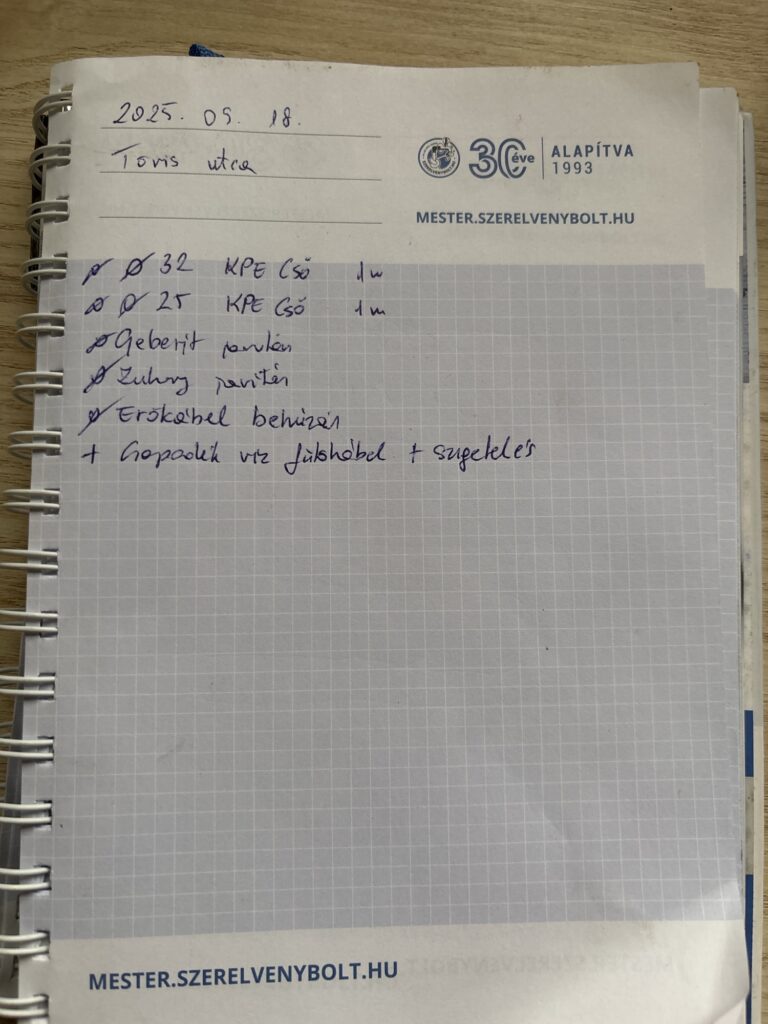 2025. 09. 18.
Tövis utca
30 éve
ALAPÍTVA
1993
MESTER.SZERELVENYBOLT.HU
Ø 32 KPE Cső 1m
Ø 25 KPE Cső 1m
Geberit javitás
Zuhany javitás
Erőkábel behúzás
+ Csapadék víz fűtőkábel + szigetelés
MESTER.SZERELVENYBOLT.HU